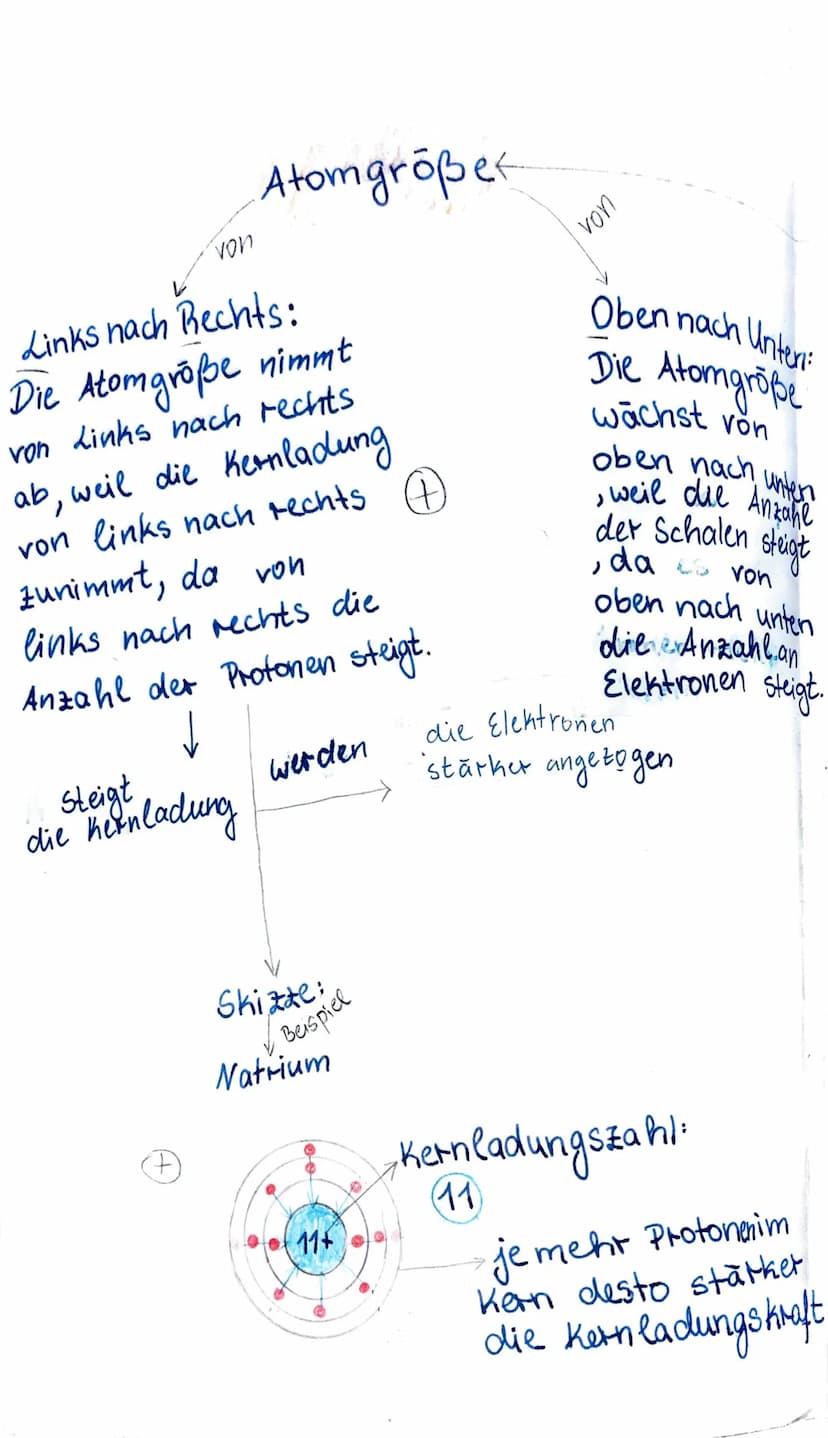 Atomgröße
von
von
Links nach Rechts:
Die Atomgröße nimmt
von Links nach rechts
ab, weil die Kernladung
von links nach rechts
zunimmt, da von
links nach rechts die
Anzahl der Protonen steigt.
+
Oben nach Unten:
Die Atomgröße
wächst von
oben nach unten
, weil die Anzahl
der Schalen steigt
, da es von
oben nach unten
die Anzahl an
Elektronen steigt.
steigt
die Kernladung
werden
die Elektronen
stärker angezogen
Skizze:
Beispiel
Natrium
+
11+
Kernladungszahl:
11
je mehr Protonen im
Kern desto stärker
die Kernladungskraft